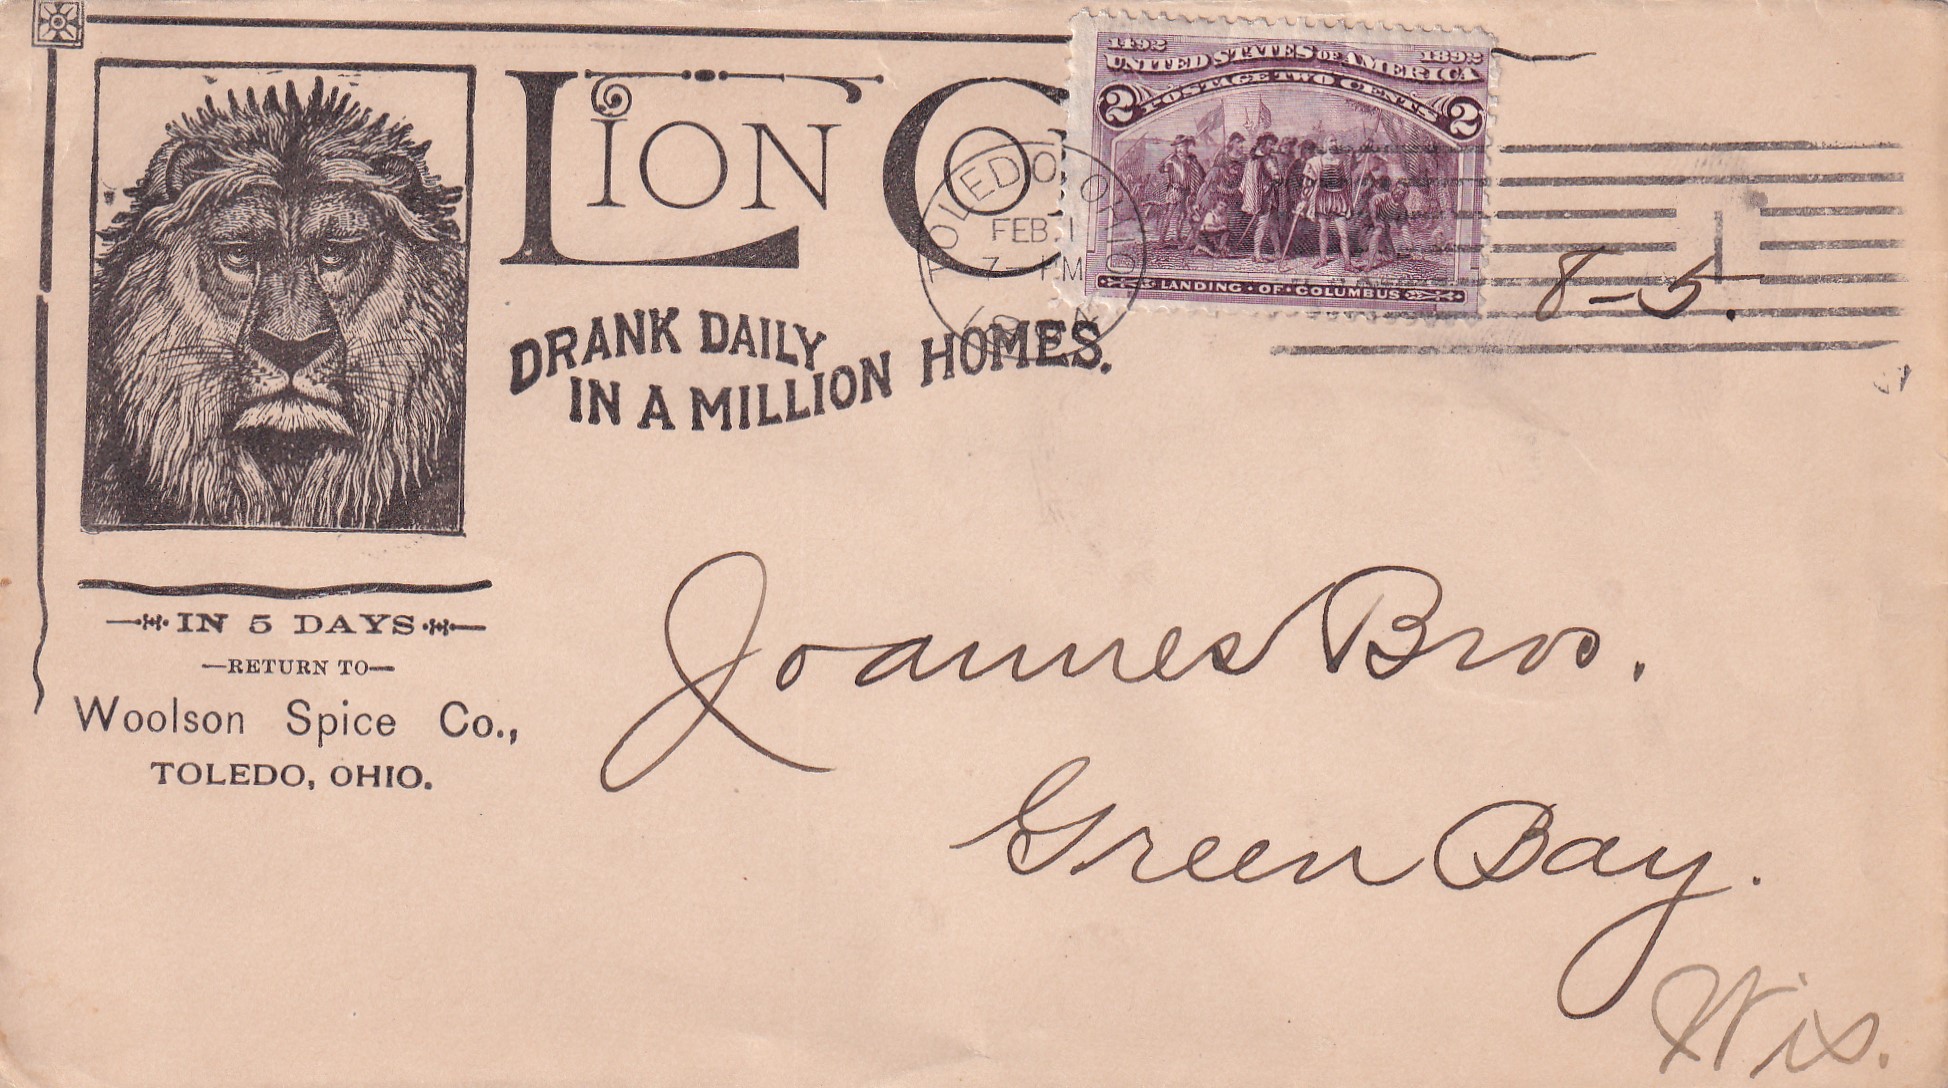 1492 1892
UNITED STATES OF AMERICA
POSTAGE TWO CENTS
2 2
LANDING · OF · COLUMBUS
LION CO
TOLEDO, OHIO
FEB. 1
7- PM
8-5.
DRANK DAILY
IN A MILLION HOMES.
IN 5 DAYS
—RETURN TO—
Woolson Spice Co.,
TOLEDO, OHIO.
Joannes Bros.
Green Bay.
Wis.